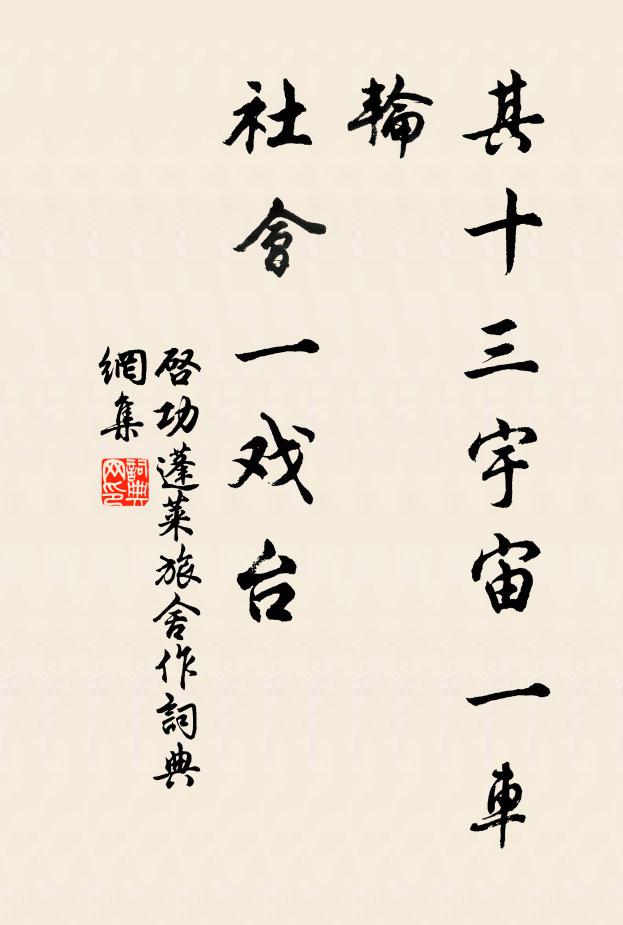 其十三宇宙一車
輪
社會一戏台
啓功蓬萊旅舍作詞典
網集
詞典网印